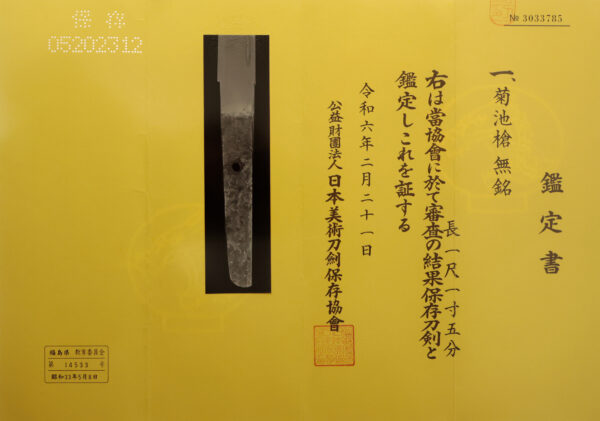 No 3033785
鑑定書
一、菊池槍 無銘
長一尺一寸五分
右は當協會に於て審査の結果保存刀剣と
鑑定しこれを証する
令和六年二月二十一日
公益財團法人 日本美術刀劍保存協會
保存
05202312
福島県 教育委員会
第 14533 号
昭和33年5月8日